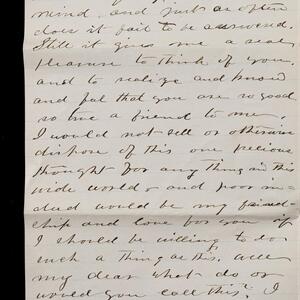 mind, and just as often
does it fail to be answered.
Still it gives me a real
pleasure to think of you
and to realize and know
and feel that you are so good
so true a friend to me.
I would not sell or otherwise
dispose of this one precious
thought for any thing in this
wide world and poor in-
deed would be my friend-
ship and love for you if
I should be willing to do
such a thing as this. Well
my dear what do or
would you call this? I